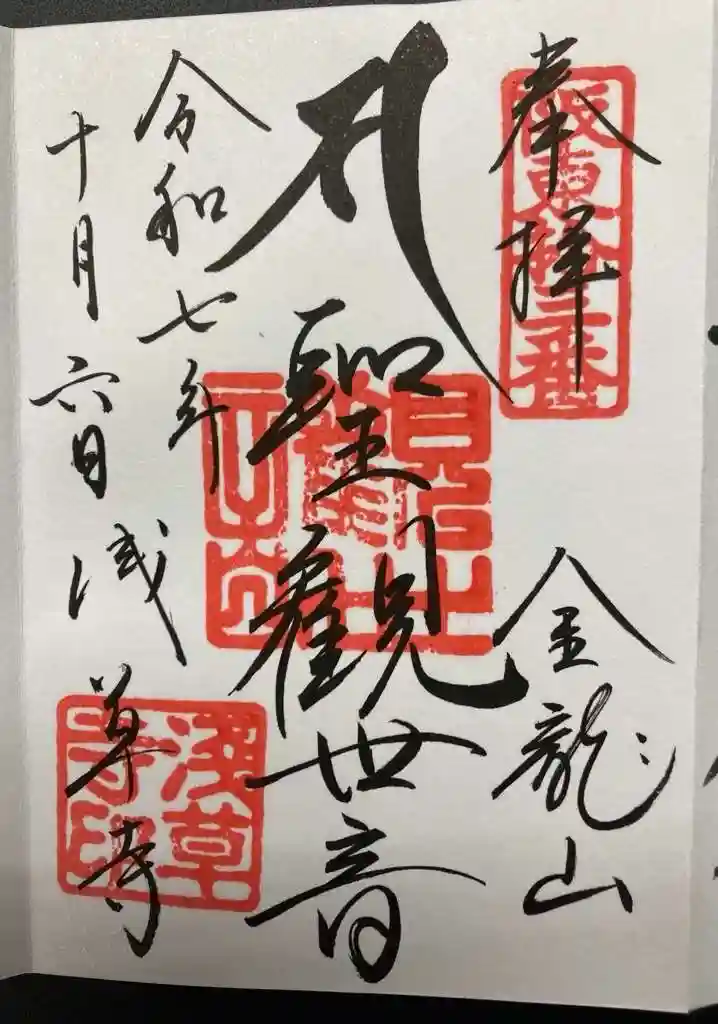 奉拝
坂東拾三番
金龍山
聖觀世音
令和七年
十月六日
浅草寺
淺草寺印